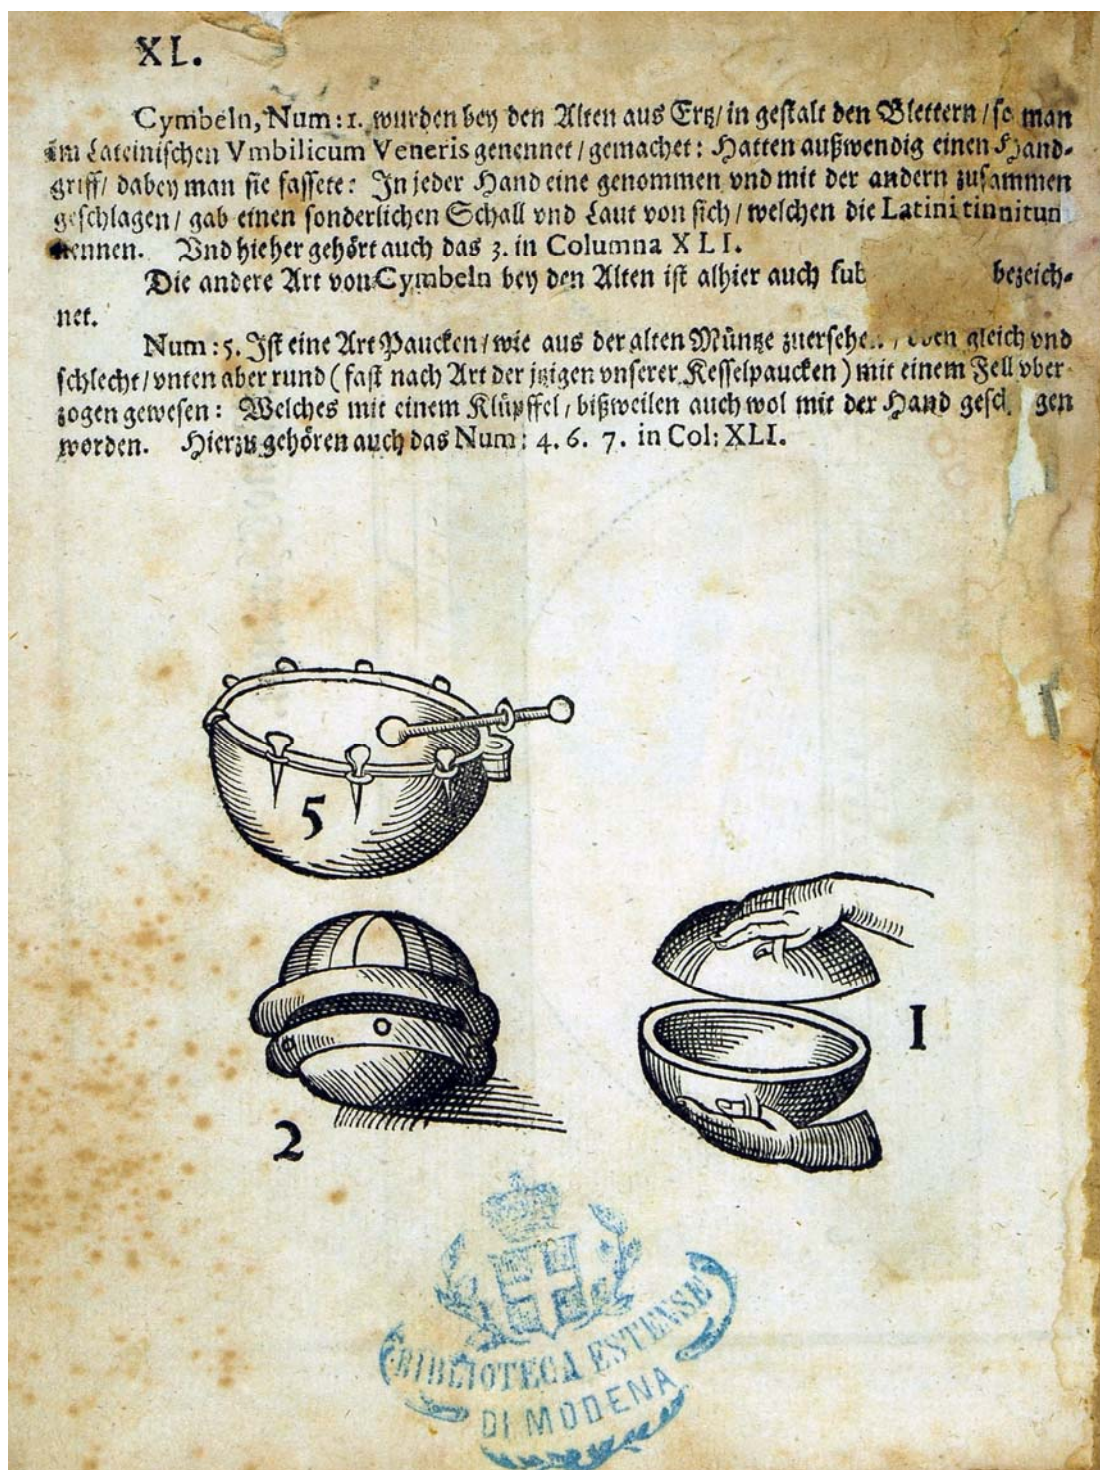 XL.
Cymbeln, Num: 1. wurden bey den Alten aus Ertz/ in gestalt den Blettern / so man
im Lateinischen Vmbilicum Veneris genennet / gemachet: Hatten außwendig einen Hand-
griff/ dabey man sie fassete: In jeder Hand eine genommen vnd mit der andern zusammen
geschlagen / gab einen sonderlichen Schall vnd Laut von sich / welchen die Latini tinnitum
nennen. Vnd hieher gehört auch das 3. in Columna XLI.
Die andere Art von Cymbeln bey den Alten ist alhier auch sub bezeich-
net.
Num: 5. Ist eine Art Paucken / wie aus der alten Müntze zuersehen / oben gleich vnd
schlecht / vnten aber rund ( fast nach Art der jtzigen vnserer Kesselpaucken ) mit einem Fell vber-
zogen gewesen: Welches mit einem Klüpffel / bißweilen auch wol mit der Hand
worden. Hierzu gehören auch das Num: 4. 6. 7. in Col: XLI.
5
1
2
BIBLIOTECA ESTENSE
DI MODENA